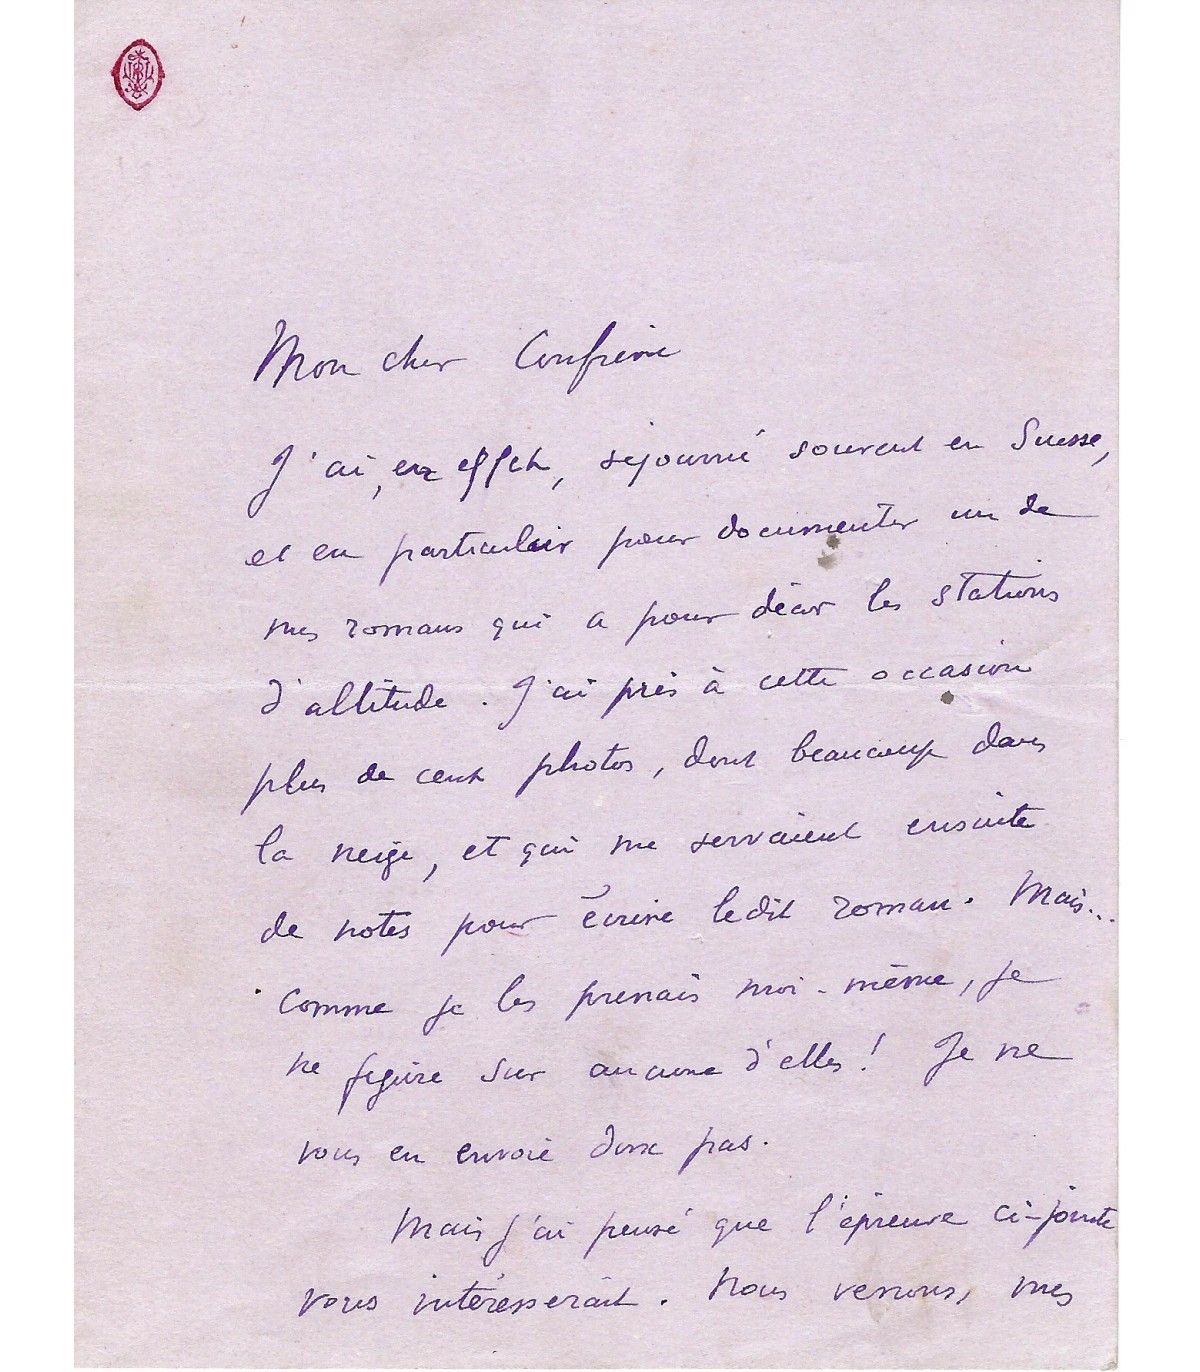 Mon cher Confrère
J'ai, en effet, séjourné souvent en Suisse,
et en particulier pour documenter un de
mes romans qui a pour décor les stations
d'altitude. J'ai pris à cette occasion
plus de cent photos, dont beaucoup dans
la neige, et qui me servaient ensuite
de notes pour écrire ledit roman. Mais...
comme je les prenais moi-même, je
ne figure sur aucune d'elles! Je ne
vous en envoie donc pas.
Mais j'ai pensé que l'épreuve ci-jointe
vous intéresserait. Nous venons, mes